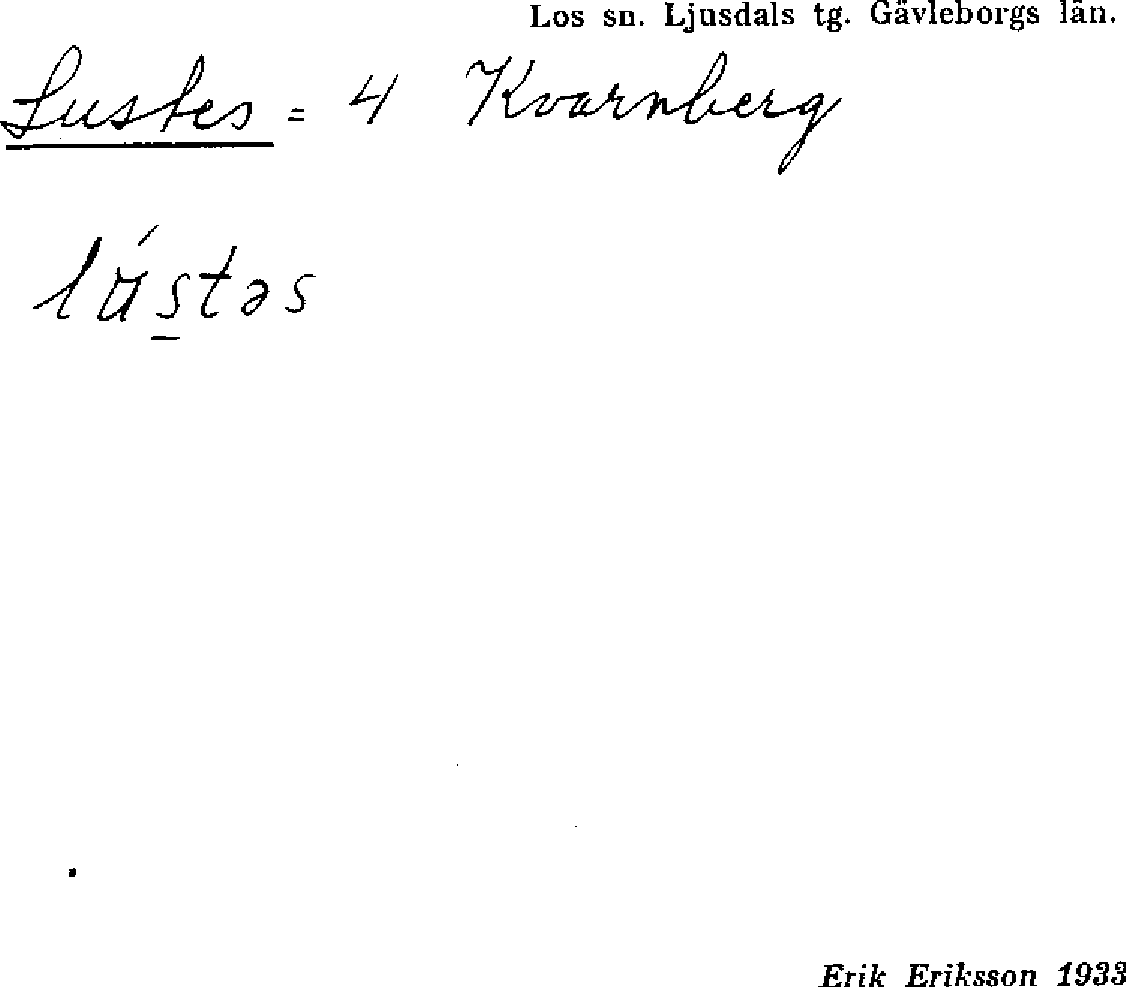 Los sn. Ljusdals tg. Gävleborgs län.
Lustes = 4 Kvarnberg
lústəs
Erik Eriksson 1933